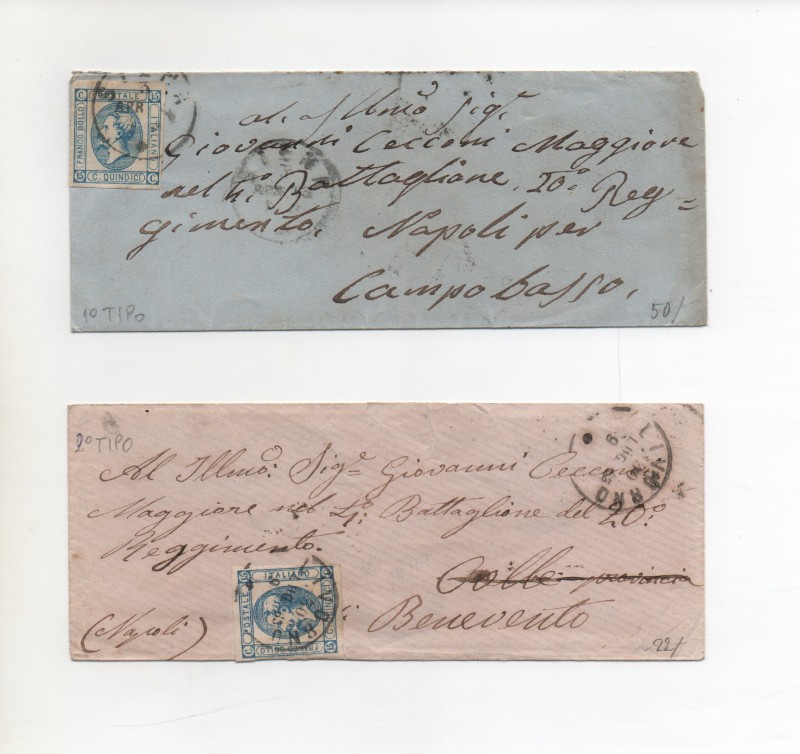 C POSTALE 15
FRANCO BOLLO
ITALIANO
15 C. QUINDICI C
APR
al Illmo Sigr
Giovanni Cecconi Maggiore
nel 4º Battaglione, 20º Reg=
gimento. Napoli per
Campobasso.
1º TIPO
50/
2º TIPO
LIVORNO
9
LUG
63
Al Illmo: Sigr Giovanni Cecconi
Maggiore nel 4º Battaglione del 20º
Reggimento.
Colle provincia
di Benevento
(Napoli)
15 ITALIANO
C POSTALE
FRANCO BOLLO
C. QUINDICI 15
LIVORNO
22/